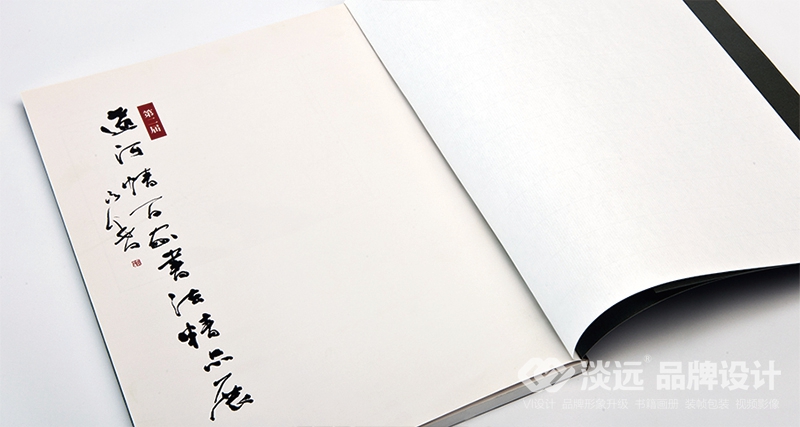 第二届
運河情百家書法精品展
淡远® 品牌设计
VI设计 品牌形象升级 书籍画册 装帧包装 视频影像